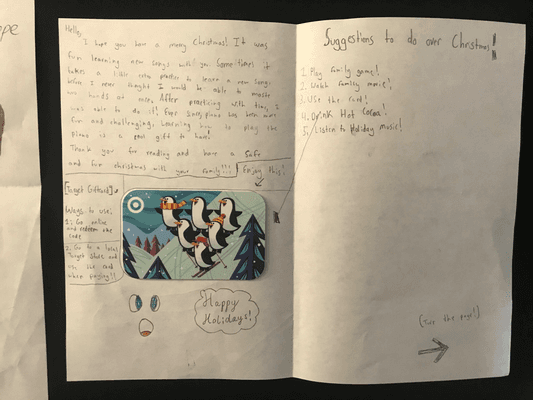 ope
Hello,
I hope you have a merry Christmas! It was
fun learning new songs with you. Sometimes it
takes a little extra practice to learn a new song.
I never thought I would be able to master
two hands at once. After practicing with time, I
was able to do it! Ever since, piano has been more
fun and challenging. Learning how to play the
piano is a great gift to have!
Thank you for reading and have a safe
and fun christmas with your family!!!
Enjoy this!
[Target Giftcard]
Ways to use:
1. Go online
and redeem the
code
2. Go to a local
Target Store and
use the card
when paying!!
Happy
Holidays!
Suggestions to do over Christmas!
1. Play family game!
2. Watch family movie!
3. Use the card!
4. Drink Hot Cocoa!
5. Listen to Holiday music!
(Turn the page!)